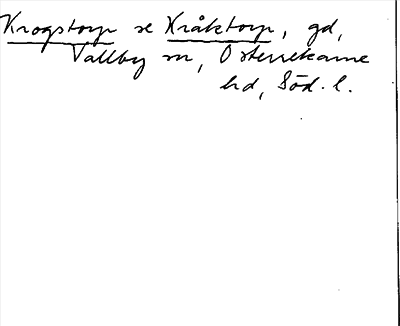 Krogstorp se Kråktorp, gd,
Vallby sn, Österrekarne
hd, Söd. l.